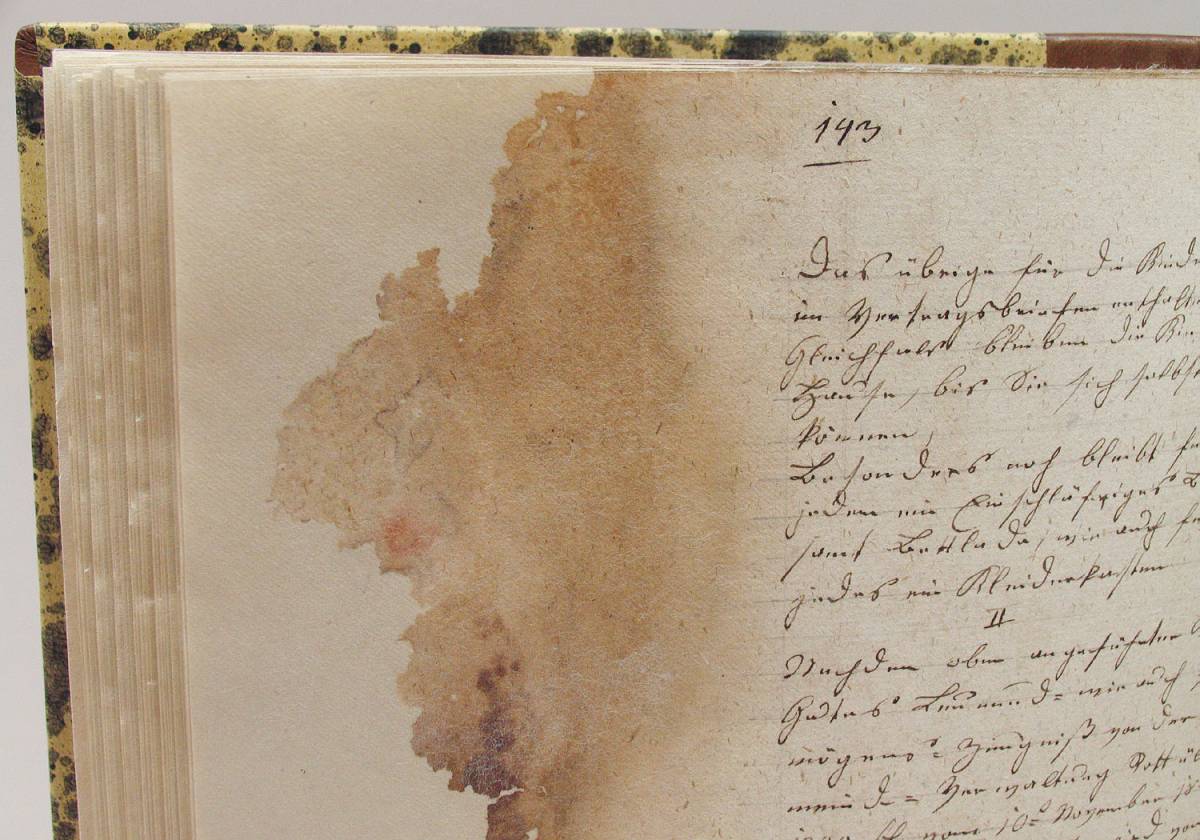 143
Das übrige für die Kinde
im Vertragsbriefen enthalt
Gleichfals bleiben die Kin
Hause, bis Sie sich selbst
können,
Besonders noch bleibt fü
jeden ein Einschläfriges B
samt Bettlade, wie auch fü
jedes ein Kleiderkasten
II
Nachdem oben angeführten
Gutes Leumund= wie auch
mögens= Zeugniß von der
meinde= Verwaltung Rott
vom 10t November